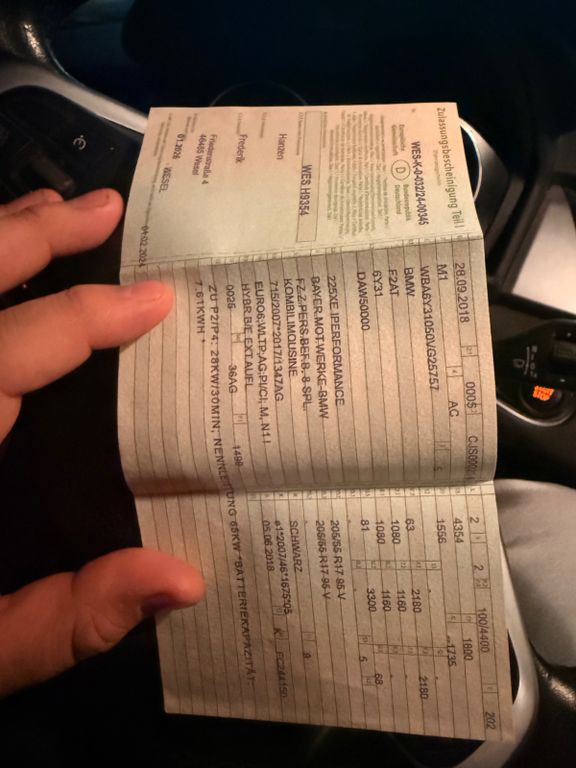 Zulassungsbescheinigung Teil I
Europäische Gemeinschaft
D
Bundesrepublik Deutschland
WES-K-0-032/24-00345
WES H9354
Hanzen
Frederik
Friedenstraße 4
46485 Wesel
01.2026
WESEL
01.02.2024
28.09.2018 0005
M1 AG
WBA6Y31050VG25757
BMW
F2AT
6Y31
DAW50D00
225XE IPERFORMANCE
BAYER.MOT.WERKE-BMW
FZ.Z.PERS.BEF.B. 8 SPL.
KOMBILIMOUSINE
715/2007*2017/1347AG
EURO6;WLTP;AG;PI/CI; M, N1 I
HYBR.B/E EXT.AUFL
0025 36AG 1499
ZU P2/P4: 28KW/30MIN, NENNLEISTUNG 65KW *BATTERIEKAPAZITÄT:
7,61KWH *
2 2 100/4400 202
4354 1800
1556 1735
63 2180 2180
1080 1160
1080 1160 68
81 3300 5
205/55 R17 95 V
205/55 R17 95 V
SCHWARZ 9
e1*2007/46*1675*05
05.06.2018 K